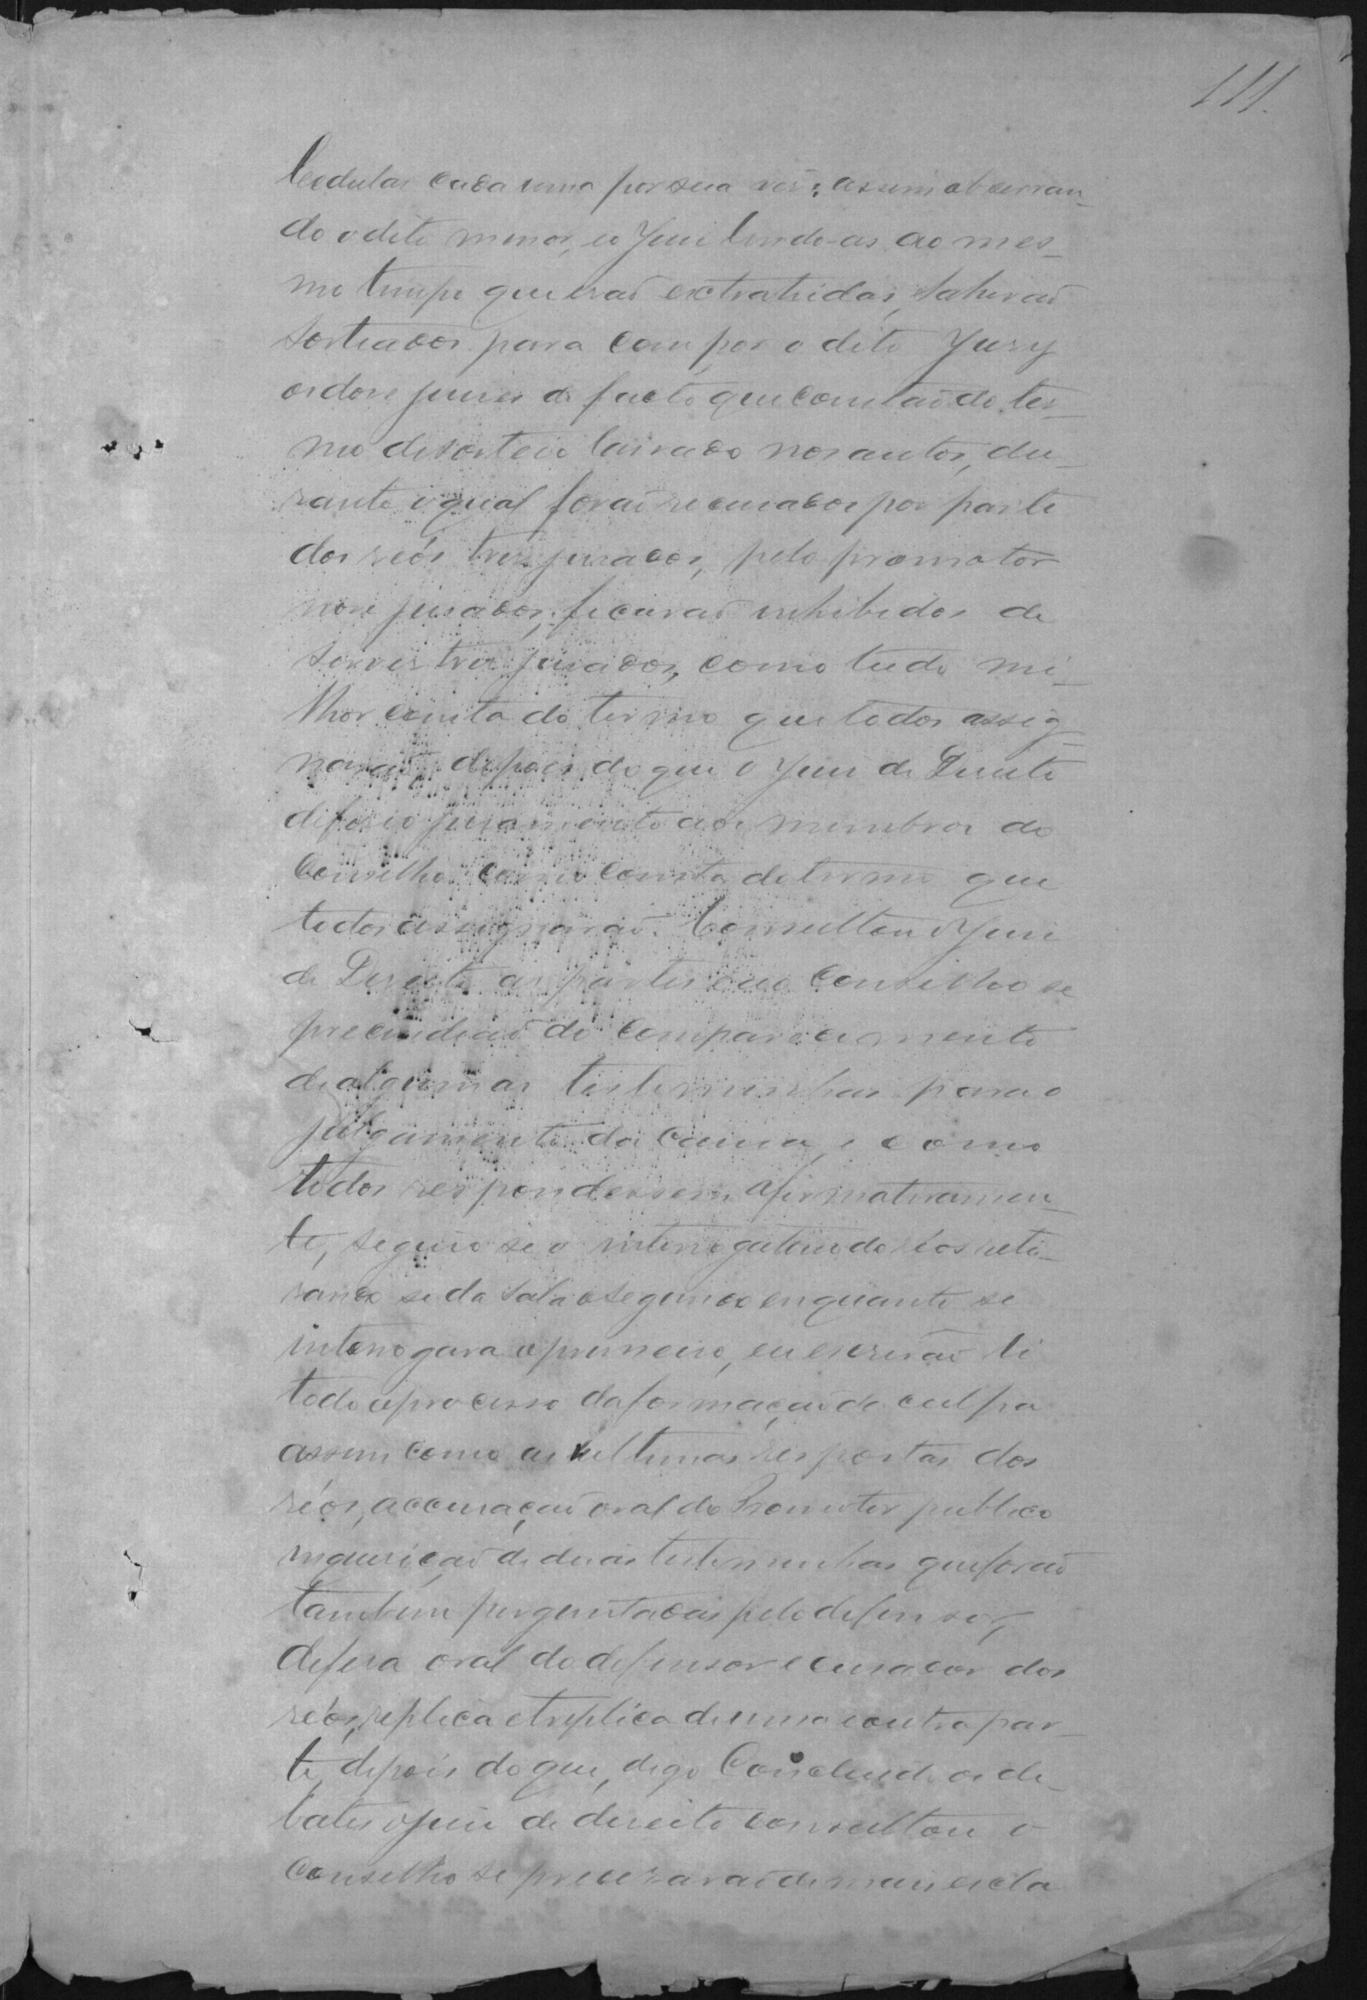 111.
Cedulas cada uma por sua vez; assim observan-
do o dito menor, e o Juiz lendo-as ao mes-
mo tempo que erão extrahidas, sahirão
sorteados para compor o dito Jury
os doze juizes de facto que constão do ter-
mo de sorteio lavrado nos autos, du-
rante o qual forão recusados por parte
dos réos tres jurados, pelo promotor
nove jurados, ficarão inhibidos de
servir tres jurados, como tudo mi-
lhor consta do termo que todos assig-
narão, depois do que o Juiz de Direito
deferio juramento aos membros do
Conselho como consta do termo que
todos assignarão. Consultou o Juiz
de Direito as partes e ao Conselho se
precindião do comparecimento
de algumas testeminhas para o
julgamento da causa, e como
todos respondessem afirmativamen-
te, seguio se o interrogatorio dos réos reti-
rando se da sala o segundo enquanto se
interrogava o primeiro, eu escrivão li
todo o processo da formação da culpa
assim como as ultimas respostas dos
réos, accusação oral do Promotor publico
inquirição de duas testemunhas que forão
tambem perguntadas pelo defensor,
defesa oral do defensor e curador dos
réos, replica e treplica de uma e outra par-
te, depois do que, digo Concluido os de-
bates o juiz de direito consultou o
Conselho se precizavão de mais escla